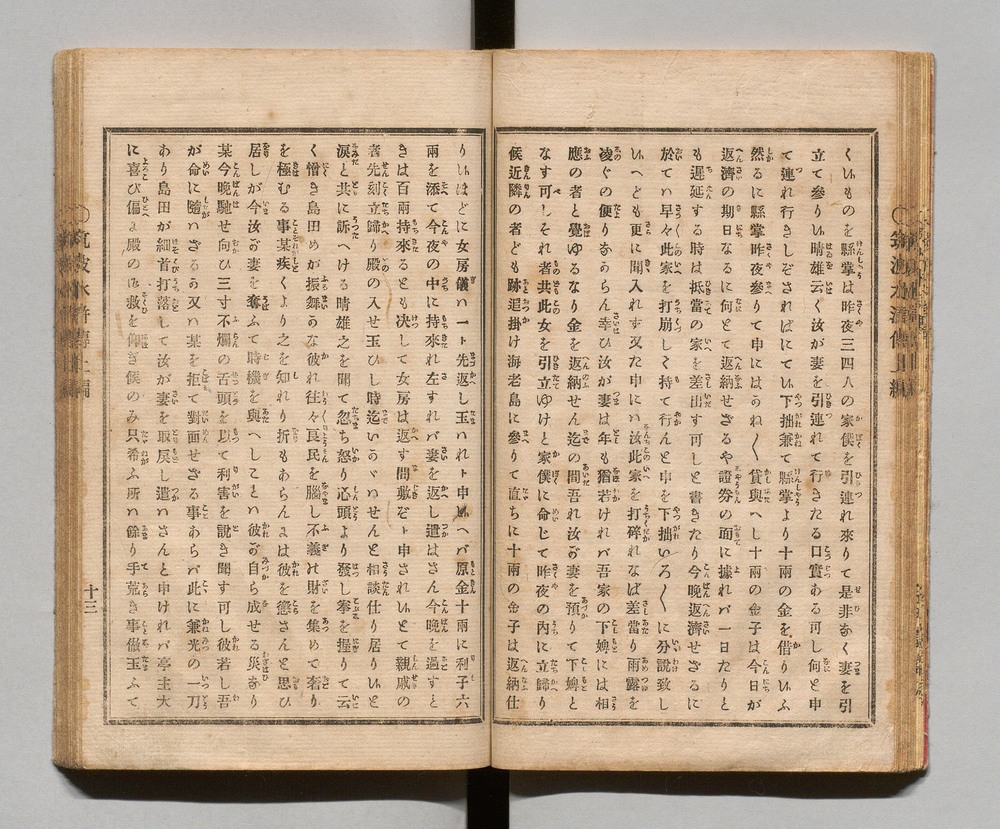 くいものを縣掌は昨夜三四人の家僕を引連れ來りて是非なく妻を引
立て參りい晴雄云く汝が妻を引連れて行きたる口實ある可し何と申
て連れ行きしぞさればにてい下拙兼て縣掌より十兩の金を借りいふ
然るに縣掌昨夜參りて申にはかね〲貸與へし十兩の金子は今日が
返濟の期日なるに何とて返納せざるや證券の面に據れバ一日たりと
も遲延する時は抵當の家を差出す可しと書きたり今晩返濟せざるに
於てい早々此家を打崩しく持て行んと申を下拙いろ〱に分說致し
いへども更に聞入れす又た申にハ汝此家を打碎れなば差當り雨露を
凌ぐの便りあらん幸ひ汝が妻は年も猶若けれバ吾家の下婢には相
應の者と覺ゆるなり金を返納せん迄の間吾れ汝が妻を預りて下婢と
なす可しそれ者共此女を引立ゆけと家僕に命じて昨夜の內に立歸り
候近隣の者ども跡追掛け海老島に參りて直ちに十兩の金子は返納仕
りいほどに女房儀ハ一ト先返し玉ハれト申いへバ原金十兩に利子六
兩を添て今夜の中に持來れ左すれバ妻を返し遣はさん今晩を過すと
きは百兩持來るとも决して女房は返す間敷ぞト申されいとて親戚の
者先刻立歸り殿の入せ玉ひし時迄いかゞハせんと相談仕り居りいと
淚と共に訴へける晴雄之を聞て忽ち怒り心頭より發し拳を握りて云
く憎き島田めが振舞かな彼れ往々良民を腦し不義の財を集めて奢り
を極むる事某疾くより之を知れり折もあらんには彼を懲さんと思ひ
居しが今汝が妻を奪ふて時機を與へしことハ彼が自ら成せる災あり
某今晩馳せ向ひ三寸不爛の舌頭を以て利害を說き聞す可し彼若し吾
が命に隨ハざるか又ハ某を拒て對面せざる事あらバ此に兼光の一刀
あり島田が細首打落して汝が妻を取戾し遣ハさんと申けれバ亭主大
に喜び偏ょ殿の御救を仰ぎ候のみ只希ふ所ハ餘り手荒き事做玉ふて
十三